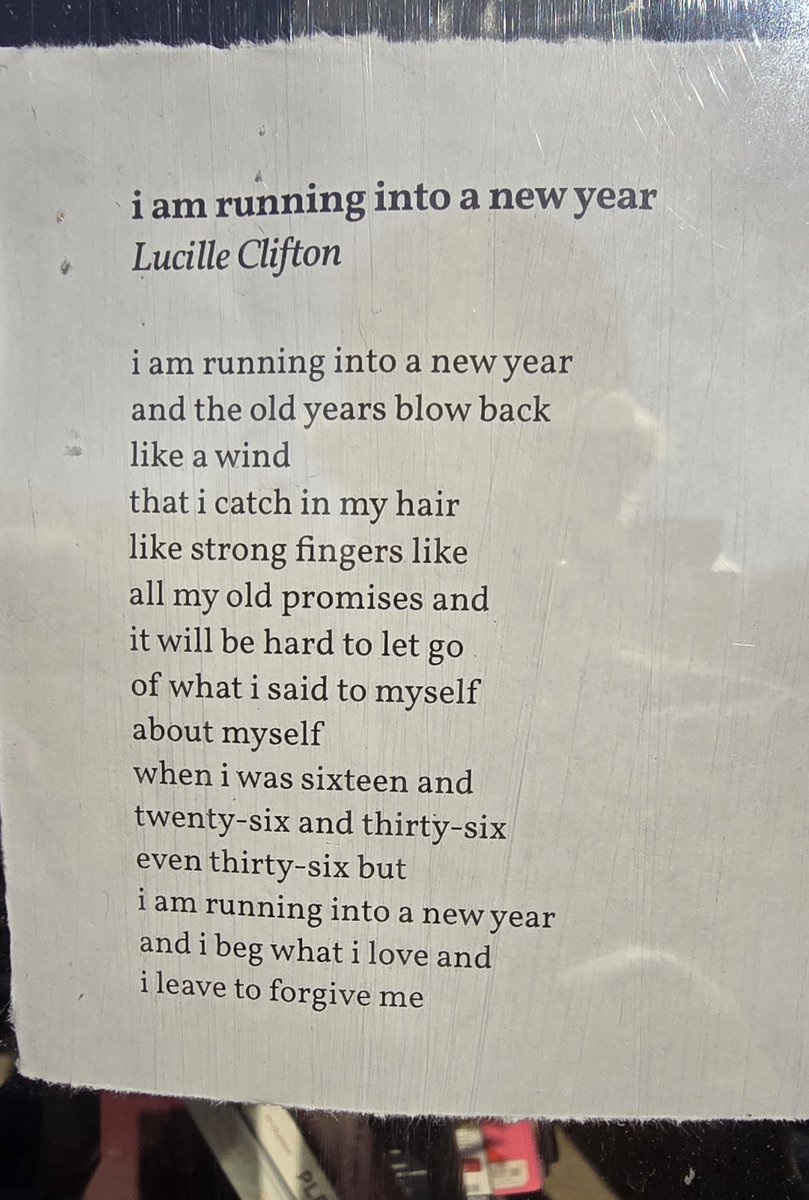 i am running into a new year
Lucille Clifton
i am running into a new year
and the old years blow back
like a wind
that i catch in my hair
like strong fingers like
all my old promises and
it will be hard to let go
of what i said to myself
about myself
when i was sixteen and
twenty-six and thirty-six
even thirty-six but
i am running into a new year
and i beg what i love and
i leave to forgive me